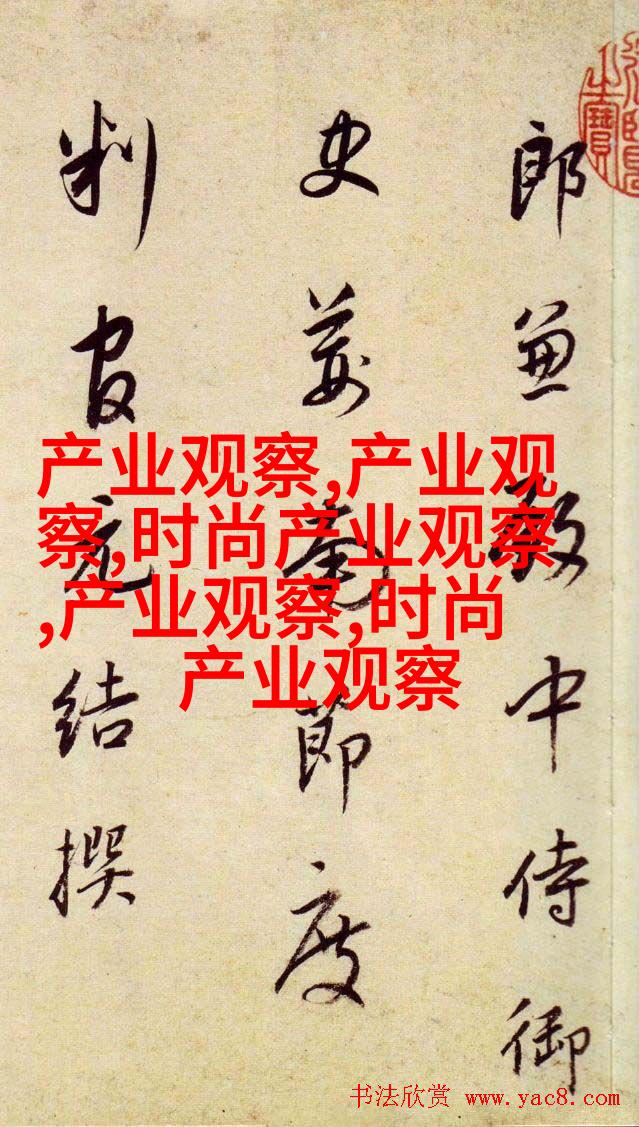 郎兼殿中侍御
史荊南節度
判官元結撰
产业观察,产业观
察,时尚产业观察
,产业观察,时尚
产业观察
书法欣赏 www.yac8.com